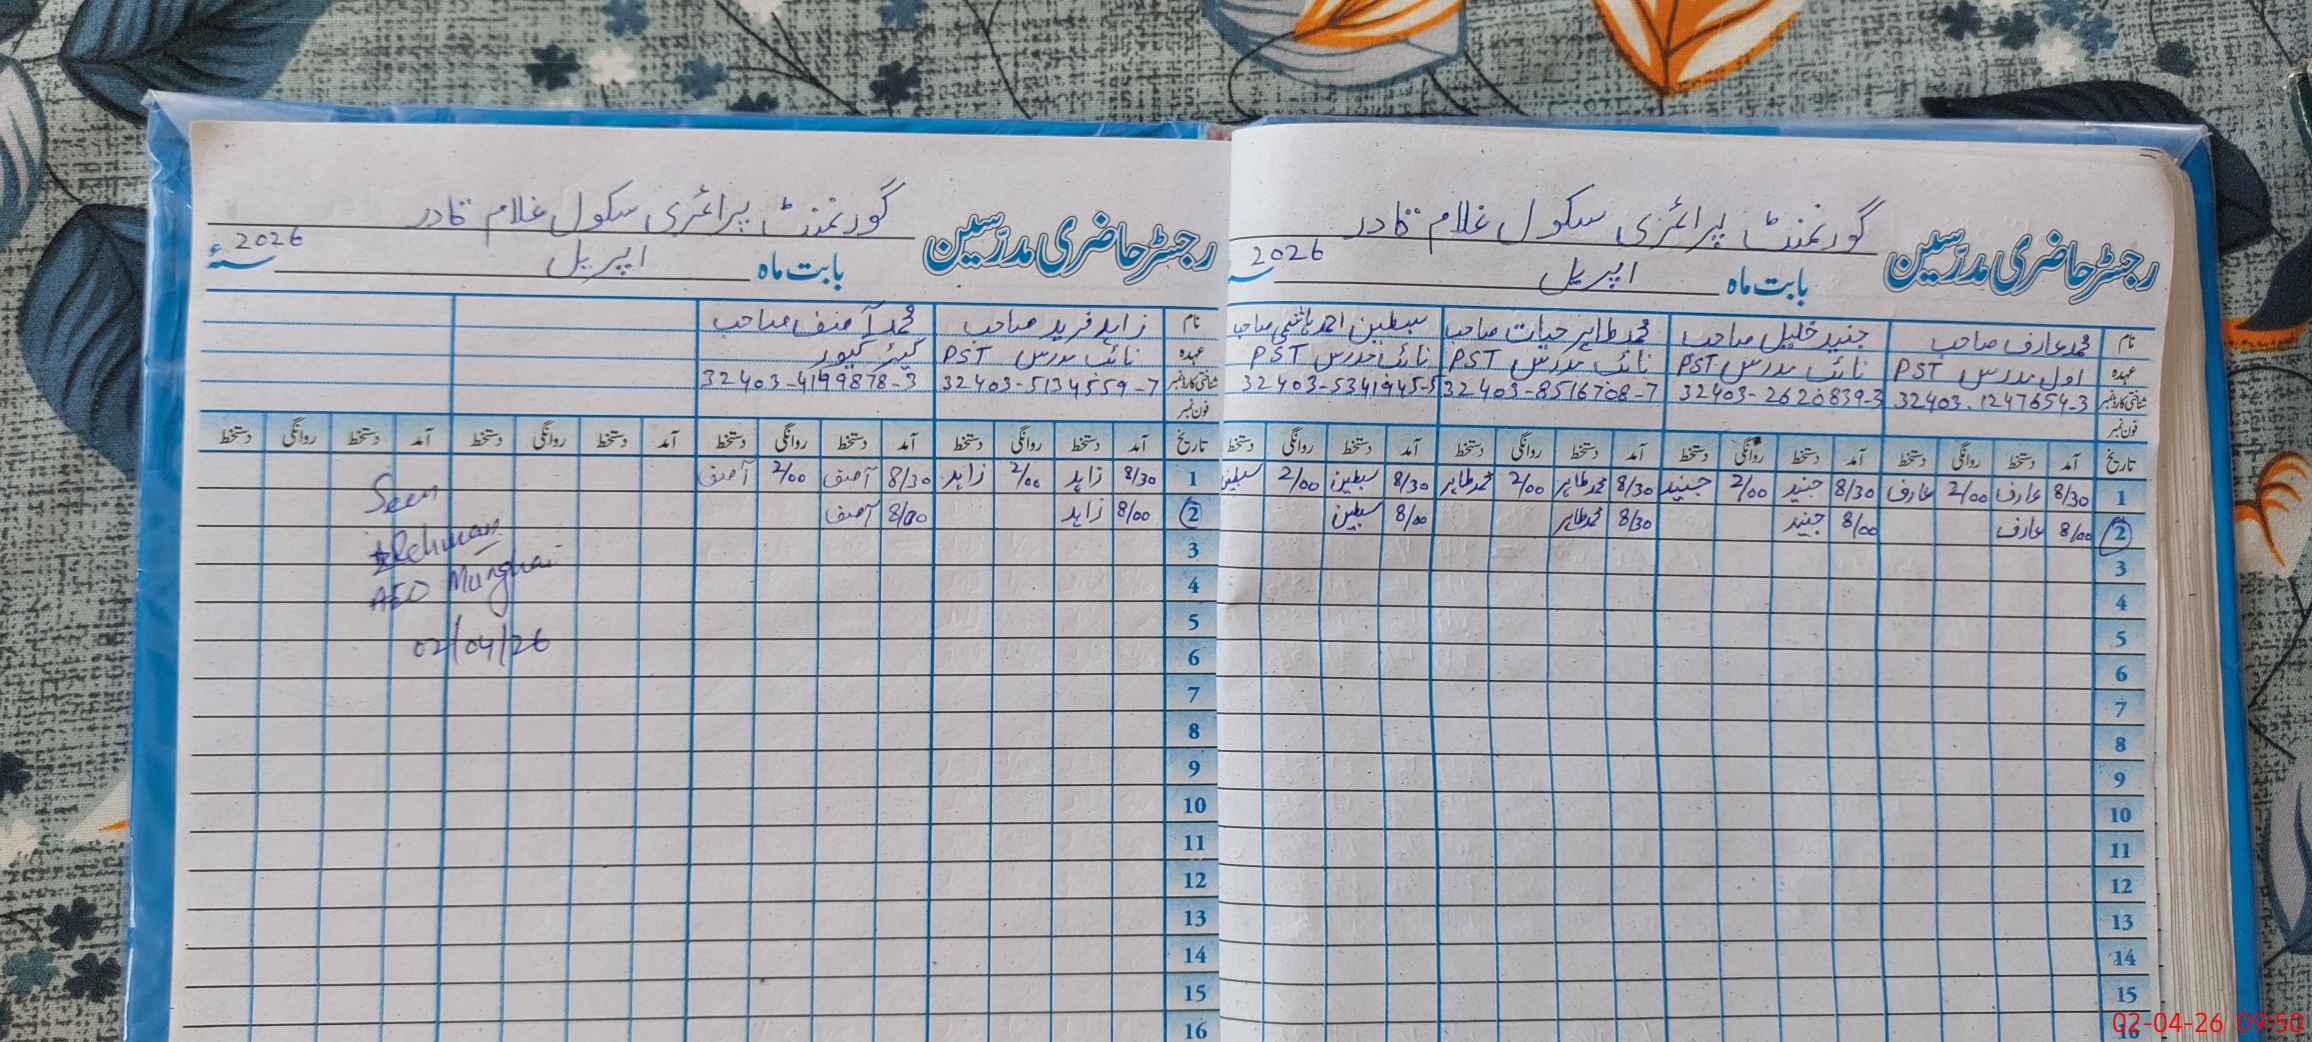 گورنمنٹ پرائمری سکول غلام قادر
رجسٹر حاضری مدرسین
بابت ماہ اپریل 2026 سنہء
نام محمد عارف صاحب جنید خلیل صاحب محمد طاہر حیات صاحب سبطین احمد ہاشمی صاحب
عہدہ اول مدرس PST نائب مدرس PST نائب مدرس PST نائب مدرس PST
شناختی کارڈ نمبر 32403-1247654-3 32403-2620839-3 32403-8516708-7 32403-5341945-5
فون نمبر
تاریخ آمد دستخط روانگی دستخط آمد دستخط روانگی دستخط آمد دستخط روانگی دستخط آمد دستخط روانگی دستخط
1 8/30 عارف 2/00 عارف 8/30 جنید 2/00 جنید 8/30 محمد طاہر 2/00 محمد طاہر 8/30 سبطین 2/00 سبطین
2 8/00 عارف 8/00 جنید 8/30 محمد طاہر 8/00 سبطین
3
4
5
6
7
8
9
10
11
12
13
14
15
16
گورنمنٹ پرائمری سکول غلام قادر
رجسٹر حاضری مدرسین
بابت ماہ اپریل 2026 سنہء
نام زاہد فرید صاحب محمد آصف صاحب
عہدہ نائب مدرس PST کیئر گیور
شناختی کارڈ نمبر 32403-5134559-7 32403-4199878-3
فون نمبر
تاریخ آمد دستخط روانگی دستخط آمد دستخط روانگی دستخط آمد دستخط روانگی دستخط آمد دستخط روانگی دستخط
1 8/30 زاہد 2/00 زاہد 8/30 آصف 2/00 آصف
2 8/00 زاہد 8/00 آصف
3
4
5
6
7
8
9
10
11
12
13
14
15
16
Seen
Rehman
AEO
02/04/26
02-04-26 09:50